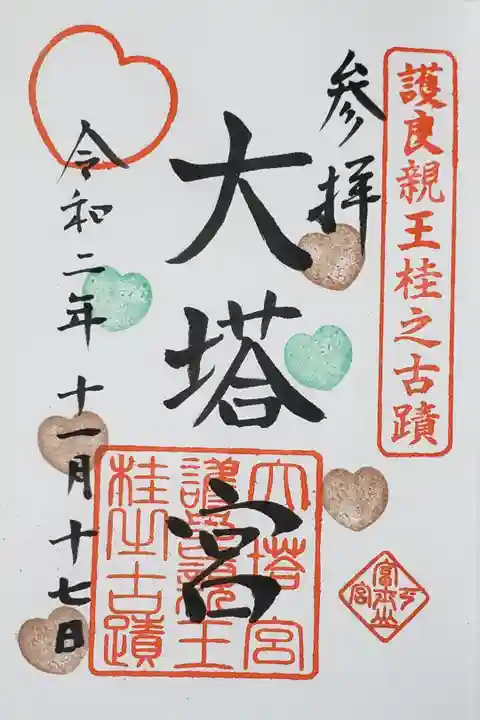 護良親王桂之古蹟
参拝
大塔宮
大塔宮
護良親王
桂之古蹟
令和二年十一月十七日